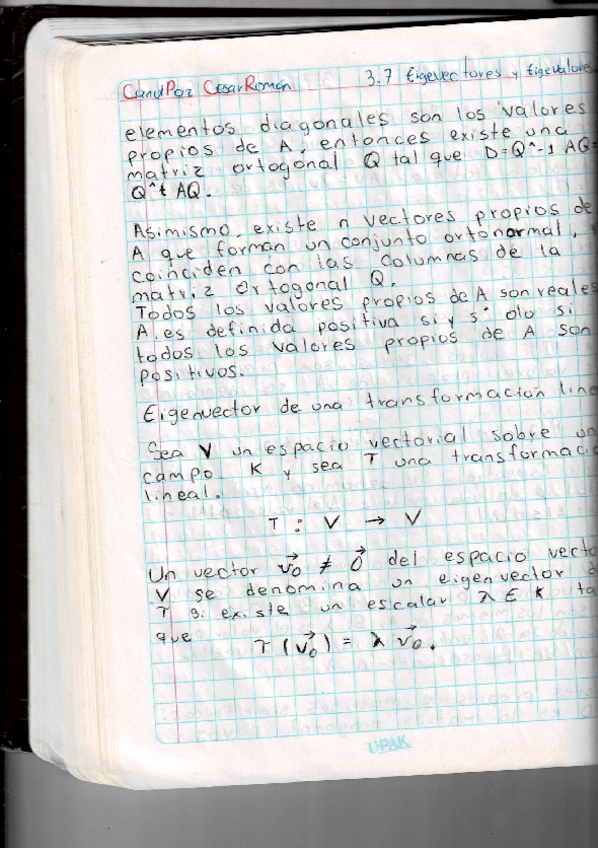 Canul Paz Cesar Román 3.7 Eigevectores y Eigevalores
elementos diagonales son los valores
propios de A, entonces existe una
matriz ortogonal Q tal que D=Q^-1 AQ=
Q^t AQ.
Asimismo, existe n vectores propios de
A que forman un conjunto ortonormal, y
coinciden con las columnas de la
matriz ortogonal Q.
Todos los valores propios de A son reales
A, es definida positiva si y s´ olo si
todos los valores propios de A son
positivos.
Eigenvector de una transformación line
Sea V un espacio vectorial sobre un
campo K y sea T una transformació
lineal.
T : V → V
Un vector v₀⃗ ≠ 0⃗ del espacio vecto
V se denomina un eigenvector d
T si existe un escalar λ ∈ K ta
que T (v₀⃗) = λ v₀⃗.